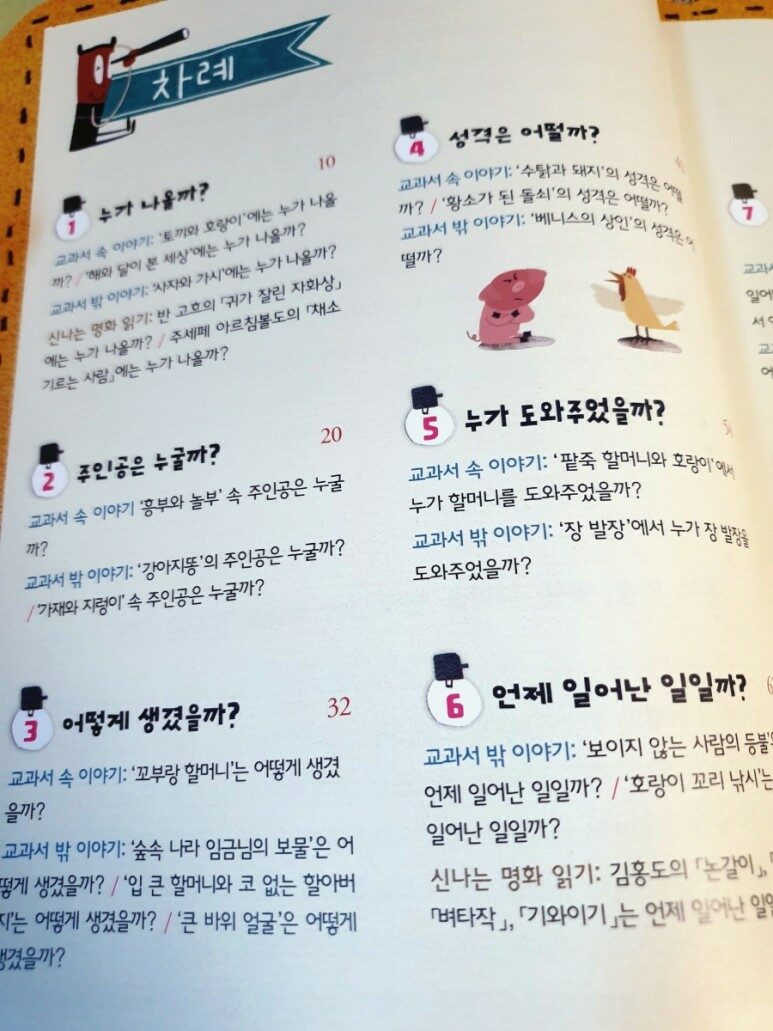 차례
1 누가 나올까? 10
교과서 속 이야기: '토끼와 호랑이'에는 누가 나올
까? / '해와 달이 본 세상'에는 누가 나올까?
교과서 밖 이야기: '사자와 가시'에는 누가 나올까?
신나는 명화 읽기: 반 고흐의 「귀가 잘린 자화상」
에는 누가 나올까? / 주세페 아르침볼도의 「채소
기르는 사람」에는 누가 나올까?
2 주인공은 누굴까? 20
교과서 속 이야기 '흥부와 놀부' 속 주인공은 누굴
까?
교과서 밖 이야기: '강아지똥'의 주인공은 누굴까?
/ '가재와 지렁이' 속 주인공은 누굴까?
3 어떻게 생겼을까? 32
교과서 속 이야기: '꼬부랑 할머니'는 어떻게 생겼
을까?
교과서 밖 이야기: '숲속 나라 임금님의 보물'은 어
떻게 생겼을까? / '입 큰 할머니와 코 없는 할아버
지'는 어떻게 생겼을까? / '큰 바위 얼굴'은 어떻게
생겼을까?
4 성격은 어떨까?
교과서 속 이야기: '수탉과 돼지'의 성격은 어떨
까? / '황소가 된 돌쇠'의 성격은 어떨까?
교과서 밖 이야기: '베니스의 상인'의 성격은 어
떨까?
5 누가 도와주었을까? 54
교과서 속 이야기: '팥죽 할머니와 호랑이'에서
누가 할머니를 도와주었을까?
교과서 밖 이야기: '장 발장'에서 누가 장 발장을
도와주었을까?
6 언제 일어난 일일까?
교과서 밖 이야기: '보이지 않는 사람의 등불'은
언제 일어난 일일까? / '호랑이 꼬리 낚시'는
일어난 일일까?
신나는 명화 읽기: 김홍도의 「논갈이」, 「
「벼타작」, 「기와이기」는 언제 일어난 일일
7